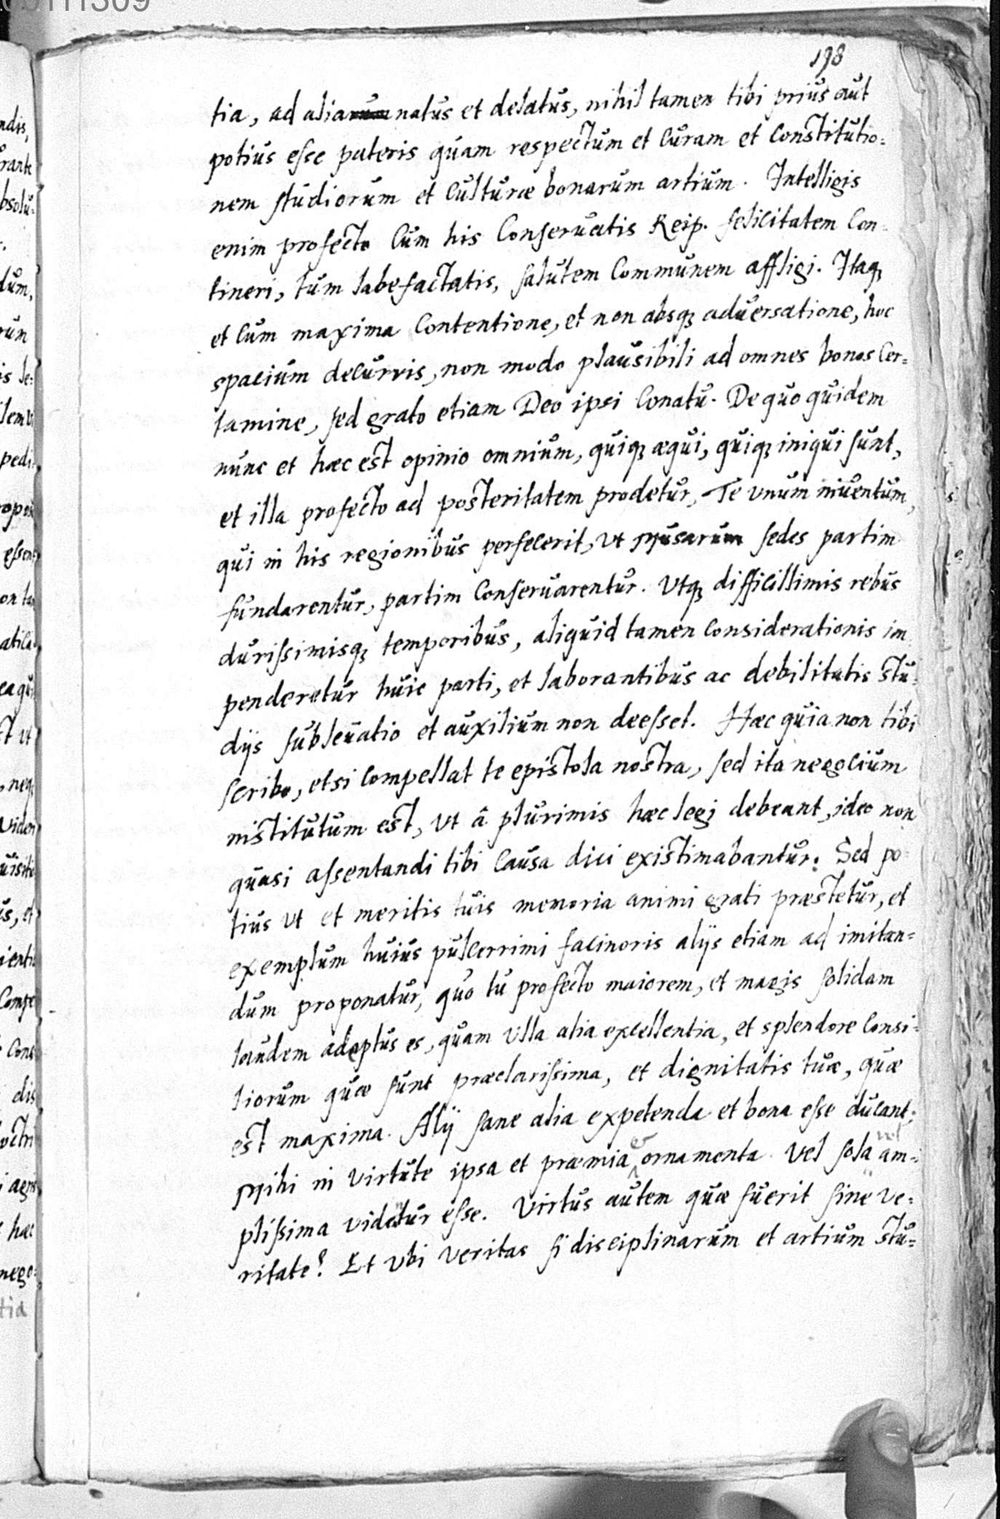 198
tia, ad alia natus et delatus, nihil tamen tibi prius aut
potius esse pateris quam respectum et curam et constitutio-
nem studiorum et culturæ bonarum artium. Intelligis
enim profecto cum his conservatis Reip. felicitatem con-
tineri, tum labefactatis, salutem communem affligi. Itaq;
et cum maxima contentione, et non absq; adversatione, hoc
spacium decurris, non modo plausibili ad omnes bonos cer-
tamine, sed grato etiam Deo ipsi conatu. De quo quidem
nunc et hæc est opinio omnium, quiq; æqui, quiq; iniqui sunt,
et illa profecto ad posteritatem prodetur, Te vnum inventum,
qui in his regionibus perfecerit, vt Musarum sedes partim
fundarentur, partim conservarentur. Vtq; difficillimis rebus
durissimisq; temporibus, aliquid tamen considerationis im
penderetur huic parti, et laborantibus ac debilitatis stu-
dijs sublevatio et auxilium non deesset. Hæc quia non tibi
scribo, etsi compellat te epistola nostra, sed ita negocium
institutum est, vt â plurimis hæc legi debeant, ideo non
quasi assentandi tibi causa dici existimabantur: Sed po-
tius vt et meritis tuis memoria animi grati præstetur, et
exemplum huius pulcerrimi facinoris alijs etiam ad imitan-
dum proponatur, quo tu profecto maiorem, et magis solidam
laudem adeptus es, quam vlla alia excellentia, et splendore consi-
liorum quæ sunt præclarissima, et dignitatis tuæ, quæ
est maxima. Alij sane alia expetenda et bona esse ducant:
Mihi in virtute ipsa et præmia & ornamenta vel sola am-
plissima videtur esse. Virtus autem quæ fuerit sine ve-
ritate? Et vbi veritas si disciplinarum et artium stu-